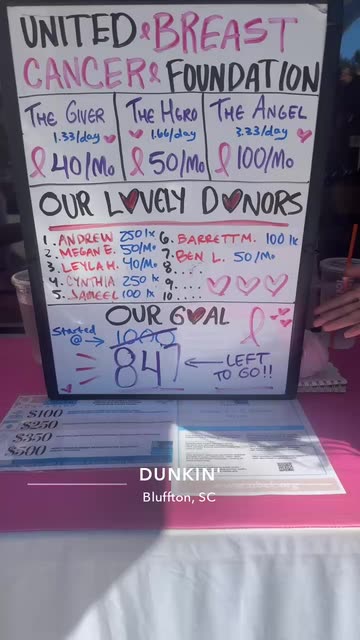 UNITED BREAST
CANCER FOUNDATION
THE GIVER
1.33/day
40/Mo
THE HERO
1.66/day
50/Mo
THE ANGEL
3.33/day
100/Mo
OUR LOVELY DONORS
1. ANDREW 250 1x
2. MEGAN E. 50/Mo
3. LEYLA H. 40/Mo
4. CYNTHIA 250 1x
5. JAMEEL 100 1x
6. BARRETT M. 100 1x
7. BEN L. 50/Mo
8. ....
9. ....
10. ....
OUR GOAL
Started @ → 1000
847 ← LEFT TO GO!!
$100
$250
$350
$500
DUNKIN'
Bluffton, SC